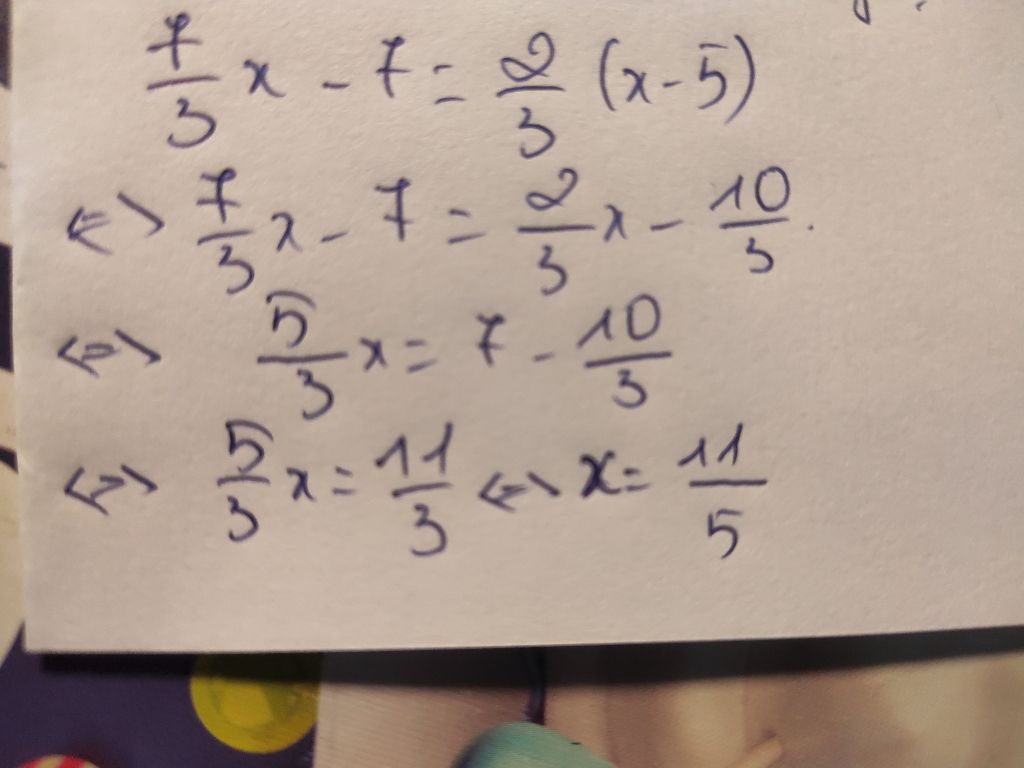 7/3 x - 7 = 2/3 (x - 5)
<=> 7/3 x - 7 = 2/3 x - 10/3.
<=> 5/3 x = 7 - 10/3
<=> 5/3 x = 11/3 <=> x = 11/5